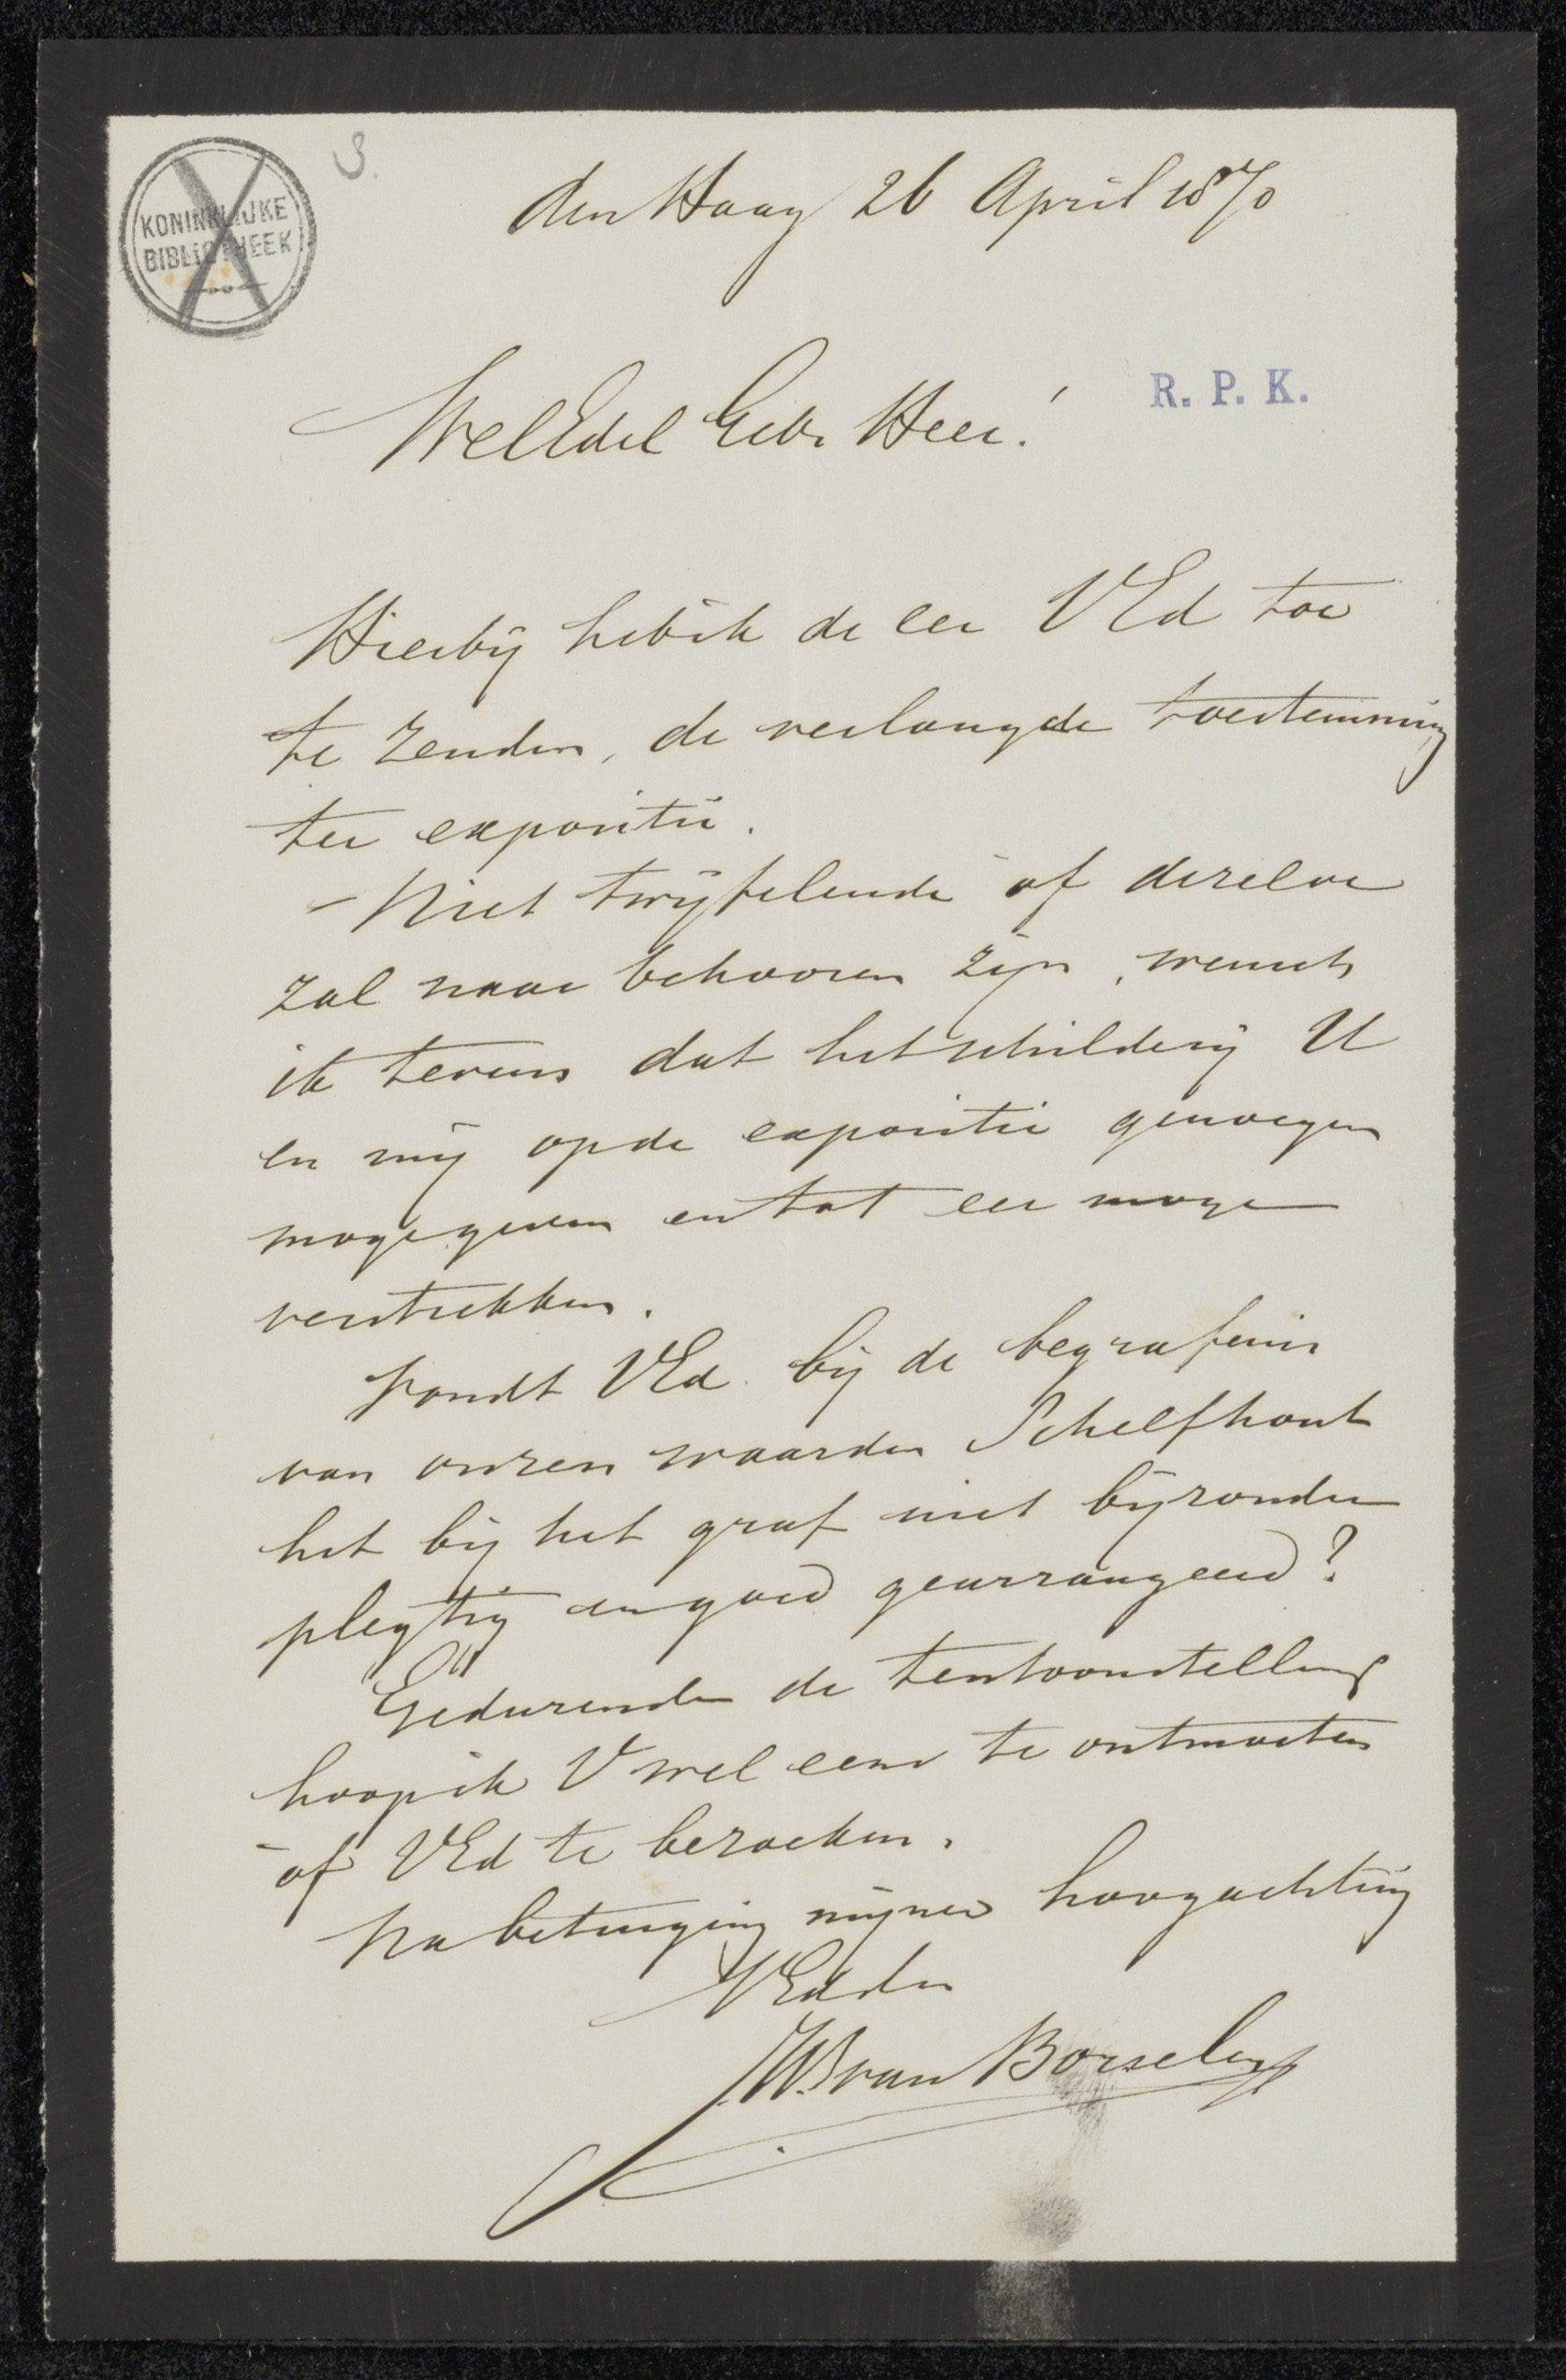 3.
KONINKLIJKE
BIBLIOTHEEK
den Haag 26 April 1870
R. P. K.
WelEdel Geb. Heer!
Hierbij heb ik de eer UEd toe
te zenden, de verlangde toestemming
ter expositie.
Niet twijfelende of dezelve
zal naar behooren zijn, wensch
ik tevens dat het schilderij U
en mij op de expositie genoegen
moge geven en tot eer moge
verstrekken.
Vondt UEd. bij de begrafenis
van onzen waarden Schelfhout
het bij het graf niet bijzonder
plegtig en goed gearrangeerd?
Gedurende de tentoonstelling
hoop ik U wel eens te ontmoeten
of UEd te bezoeken.
Na betuiging mijner hoogachting
UEd dr
JW van Borselen